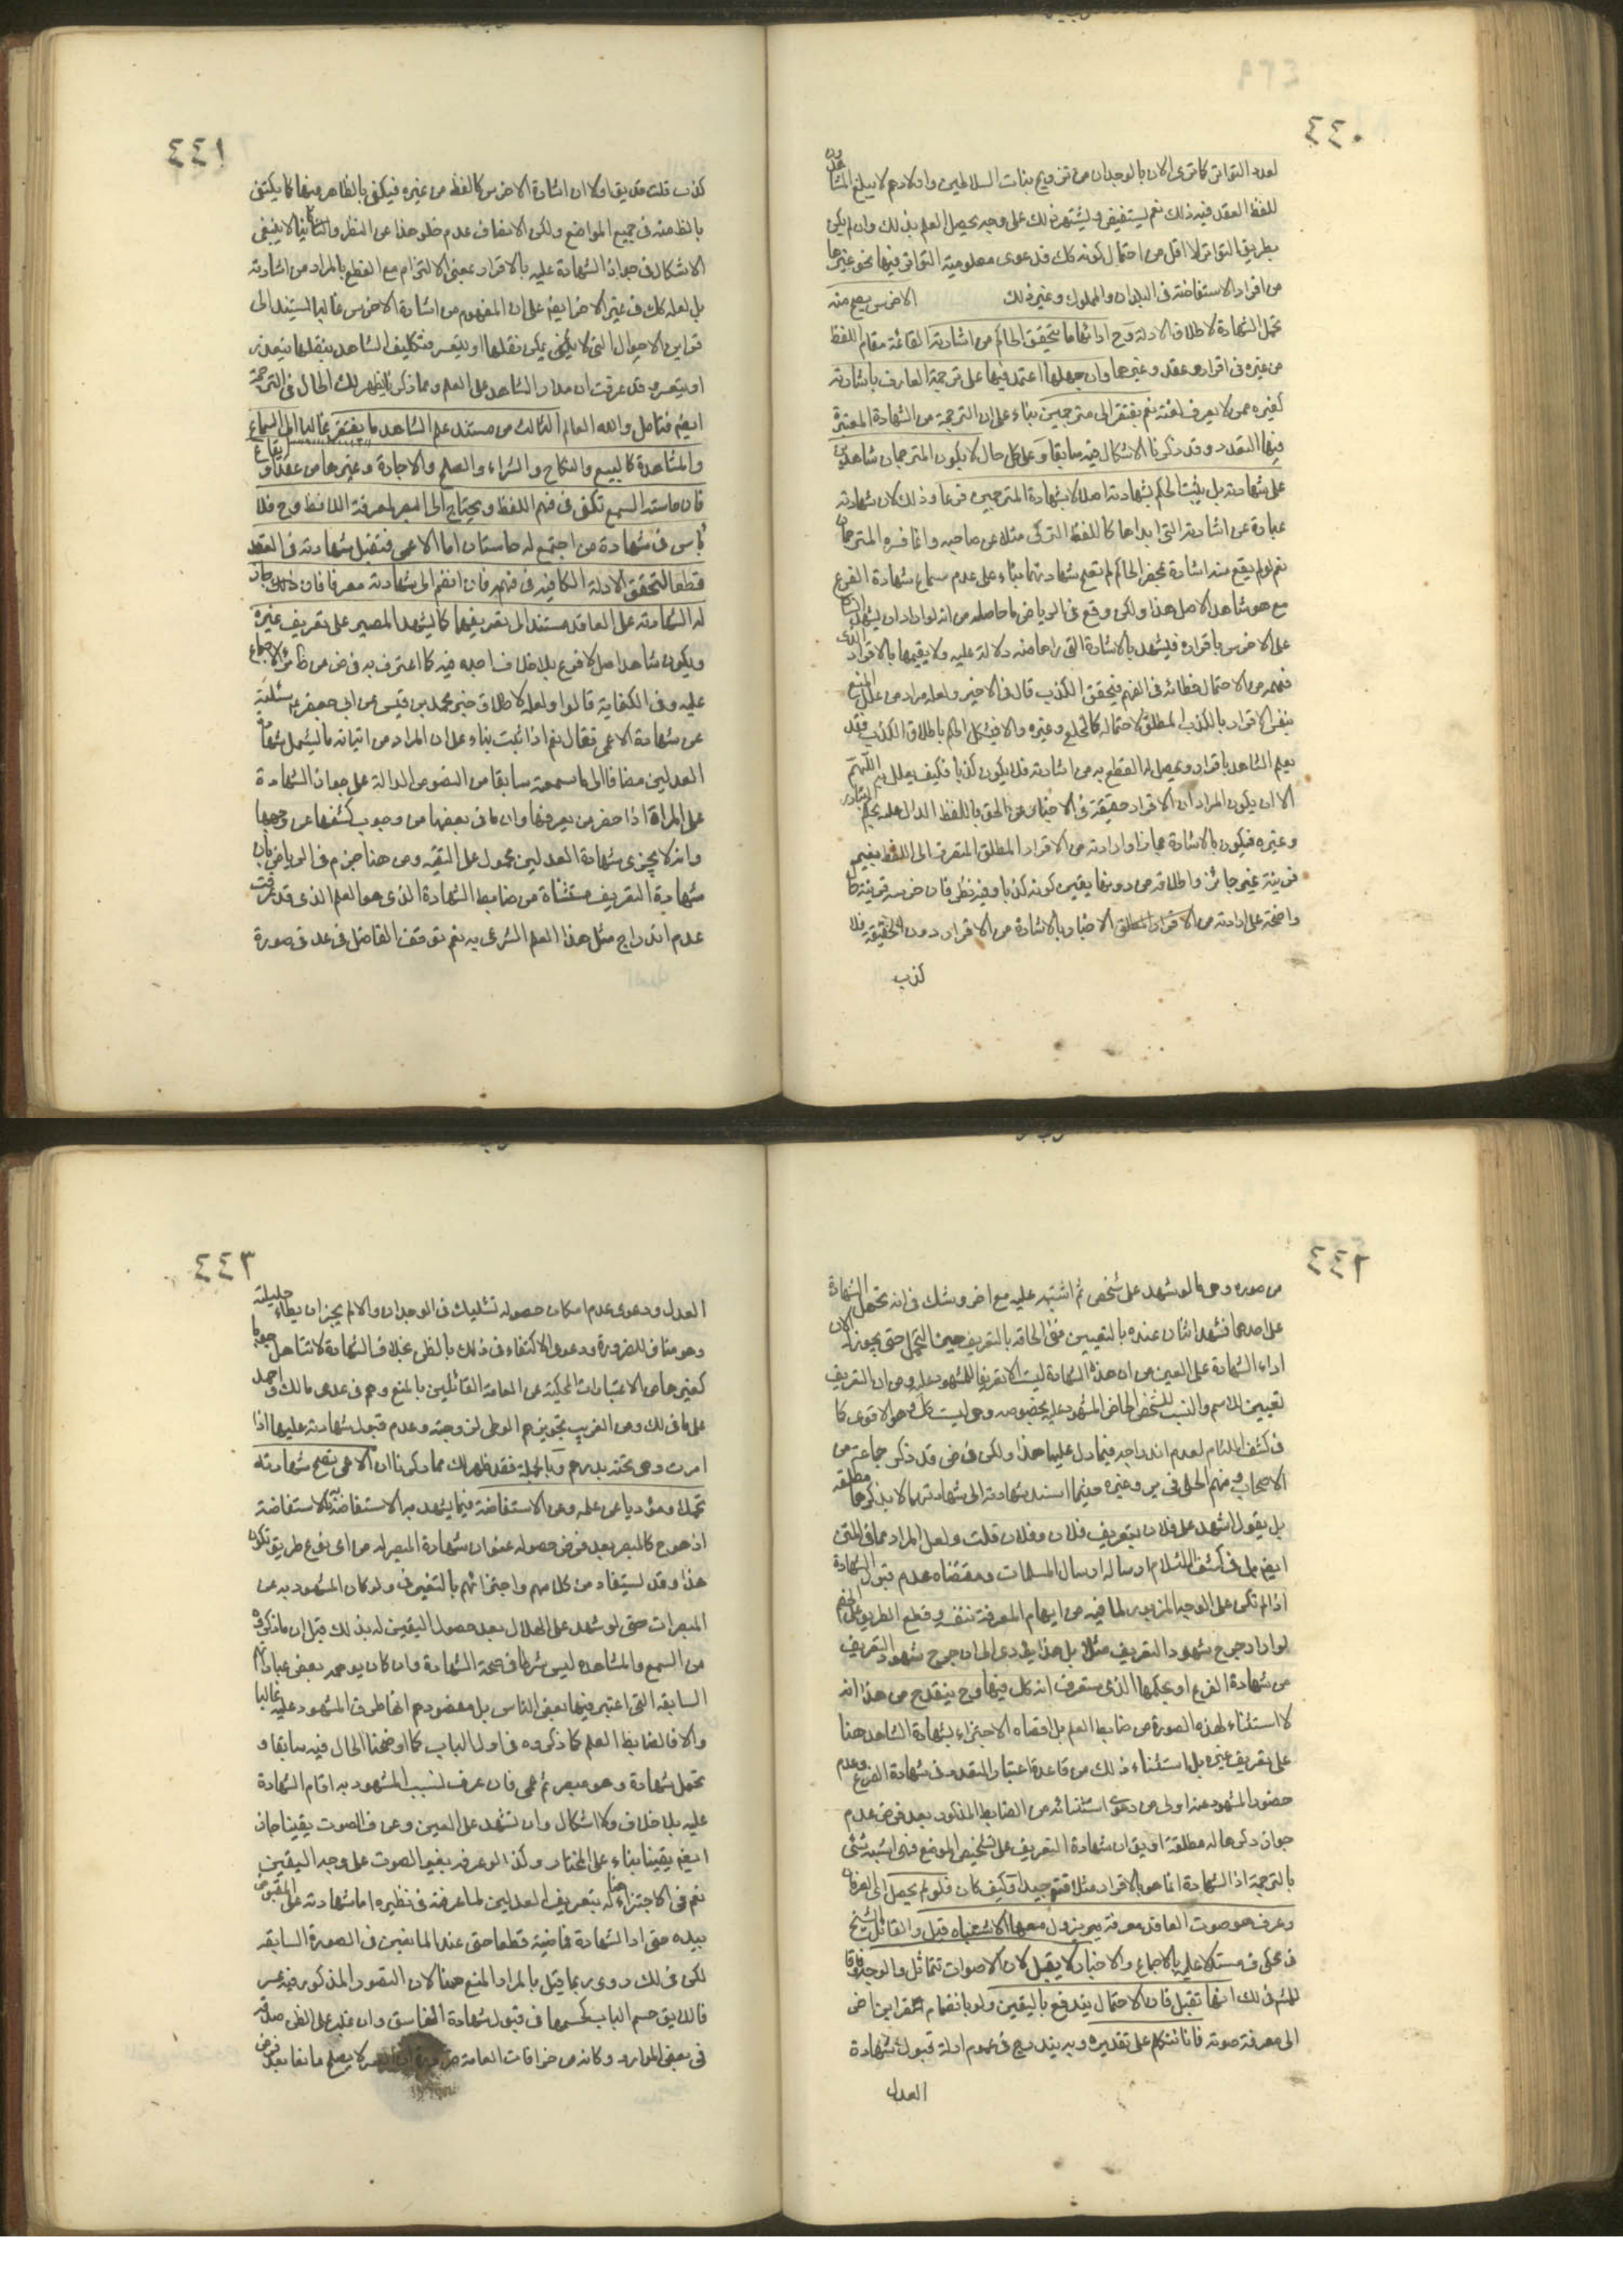 ٤٤٠
لعدد التواتر كما ترى الان بالوجدان من تزويج بنات السلاطين واولادهم لا يبلغ المشاهدون
للفظ العقد فيه ذلك نعم يستفيض ويشتهر ذلك على وجه يحصل العلم بذلك وان لم يكن
بطريق التواتر لا اقل من احتمال كونه كك فدعوى معلومية التواتر فيها نحو غيرها
من افراد الاستفاضة فى البلدان والملوك وغير ذلك الاخرس يصح منه
تحمل الشهادة لاطلاق الادلة وح ادائها ما يتحقق الحاكم من اشارته القائمة مقام اللفظ
من غيره فى اقراره عقد وغيرهما وان جهلها اعتمد فيها على ترجمة العارف باشارته
كغيره ممن لا يعرف لغته نعم يفتقر الى مترجمين بناء على ان الترجمة من الشهادة المعتبرة
فيها التعدد وقد ذكرنا الاشكال فيه سابقا وعلى كل حال لا يكون المترجمان شاهدين
على شهادته بل يثبت الحكم بشهادته اصلا لا بشهادة المترجمين فرعا وذلك لان شهادته
عبارة عن اشارته التى ابداها كاللفظ التركى مثلا عن صاحبه وانما فسره المترجمان
نعم لو لم يقع منه اشارة بمحضر الحاكم لم تصح شهادتهما بناء على عدم سماع شهادة الفرع
مع هو شاهد الاصل هذا ولكن وقع فى الرياض ما حاصله من انه لو اراد ان يشهد الشاهد
على الاخرس باقراره فليشهد بالاشارة التى رآها منه دلالة عليه ولا يقيمها بالاقرار الذى
فهمه من الاحتمال خطائه فى الفهم فيتحقق الكذب قال فى الاخير ولعله مراد من علل المنع
بنفى الاقرار بالكذب المطلق لاحتماله كالحلى وغيره والا فيشكل الحكم باطلاق الكذب فقد
يعلم الشاهد باقراره ويحصل له القطع به من اشارته فلا يكون كذبا فكيف يعلل به اللهم
الا ان يكون المراد ان الاقرار حقيقة فى الاخبار عن الحق باللفظ الدال عليه بحكم التبادر
وغيره فيكون بالاشارة مجازا وارادته من الاقرار المطلق المنصرف الى اللفظ بغير
قرينة غير جائز واطلاقه من دونها يقين كونه كذبا وفيه نظر فان خرسه قرينة حال
واضحة على ارادته من الاقرار المطلق الاخبار بالاشارة من الاقرار دون الحقيقة فلا
كذب
٤٤١
كذب قلت قد يق اولا ان اشارة الاخرس كاللفظ من غيره فيكفى بالظاهر منها كما يكتفى
بالظ منه فى جميع المواضع ولكن الانصاف عدم خلو هذا عن النظر وثانيا لا ينبغى
الاشكال فى جواز الشهادة عليه بالاقرار بمعنى الالتزام مع القطع بالمراد من اشارته
بل لعله كك فى غير الاخرس ايضا على ان المفهوم من اشارة الاخرس غالبا يستند الى
قراين الاحوال التى لا يمكن نقلها او يتعسر فتكليف الشاهد بنقلها يتعذر
او يتعسر وقد عرفت ان مدار الشاهد على العلم ومما ذكرنا يظهر لك الحال فى الترجمة
ايضا فتامل والله العالم الثالث من مستند علم الشاهد ما يفتقر غالبا الى السماع
والمشاهدة كالبيع والنكاح والشراء والصلح والاجارة وغيرها من عقد او ايقاع
فان حاسته السمع تكفى فى فهم اللفظ ويحتاج الى البصر لمعرفة اللافظ وح فلا
باس فى شهادة من اجتمع له حاستان اما الاعمى فتقبل شهادته فى العقد
قطعا لتحقق الادلة الكافية فى فهمه فان انضم الى شهادته معرفا فان ذلك جاز
له الشهادة على العاقد مستندا الى تعريفهما كما يشهد المبصر على تعريف غيره
ويكون شاهد اصل لا فرع بلا خلاف اجده فيه كما اعترف به فى ض من ظاهر الاجماع
عليه وفى الكفاية قالوا ولعله لاطلاق خبر محمد بن قيس عن ابى جعفر ع سئلته
عن شهادة الاعمى فقال نعم اذا ثبت بناء على ان المراد من اثباته ما يشمل شهادة
العدلين مضافا الى ما سمعته سابقا من النصوص الدالة على جواز الشهادة
على المراة اذا حضر من يعرفها وان ما فى بعضها من وجوب كشفها عن وجهها
وانه لا يجزى شهادة العدلين محمول على التقية ومن هنا جزم فى الرياض بان
شهادة التعريف مستثناة من ضابط الشهادة الذى هو العلم الذى قد عرفت
عدم اندراج مثل هذا العلم الشرعى به نعم توقف الفاضل فى عد فى صورة
٤٤٢
من صوره وهى ما لو شهد على شخص ثم اشتبه عليه مع اخر وشك فى انه تحمل الشهادة
على احدهما فشهد اثنان عنده بالتعيين ففى الحاقه بالتعريف حين التحمل حتى يجوز له الان
اداء الشهادة على العين من ان هذه الشهادة ليست الا تعريفا للمشهود عليه ومن ان التعريف
تعيين الاسم والنسب للشخص الحاضر المشهود عليه بخصوصه وهى ليست كك وهو الاقوى كما
فى كشف اللثام لعدم اندراجه فيما دل عليها هذا ولكن فى ض قد ذكر جماعة من
الاصحاب ومنهم الحلى فى ير وغيره حيثما استند بشهادته الى شهادتهما لا يذكرها مطلقه
بل يقول اشهد على فلان بتعريف فلان وفلان قلت ولعل المراد مما فى المتن
ايضا بل فى كشف اللثام ارساله ارسال المسلمات ومقتضاه عدم قبول الشهادة
اذا لم تكن على الوجه المزبور لما فيه من ايهام المعرفة بنفسه وقطع الطريق على الخصم
لو اراد جرح شهود التعريف مثلا بل هذا يؤدى الى ان جرح شهود التعريف
من شهادة الفرع او بحكمها الذى ستعرف انه كك فيها وح ينقدح من هذا انه
لا استثناء لهذه الصورة من ضابط العلم بل اقصاه الاجتزاء بشهادة الشاهد هنا
على تعريف غيره بل استثناء ذلك من قاعدة اعتبار التعدد فى شهادة الفرع وعدم
حضور المشهود عنه اولى من دعوى استثنائه من الضابط المذكور بعد فرض عدم
جواز ذكرها له مطلقة او يق ان شهادة التعريف على تشخيص الموضع فهى اشبه شئ
بالترجمة اذ الشهادة انما هو بالاقرار مثلا فتم جيدا وكيف كان فلو لم يحصل له العرفان
وعرف هو صوت العاقد معرفة يزول معها الاشتباه قيل والقائل الشيخ
فى محكى ف مستدلا عليه بالاجماع والاخبار لا يقبل لان الاصوات تتماثل والوجه وفاقا
للمشهور فى لك انها تقبل فان الاحتمال يندفع باليقين ولو بانضمام القراين اض
الى معرفة صوته فانا نتكلم على تقديره وبه يندرج فى عموم ادلة قبول شهادة
العدل
٤٤٣
العدل ودعوى عدم امكان حصوله تشكيك فى الوجدان والا لم يجز ان يطاء حليلته
وهو مناف للضرورة ودعوى الاكتفاء فى ذلك بالظن بخلاف الشهادة لا تستاهل جوابا
كغيرها من الاعتبارات المحكية عن العامة القائلين بالمنع وهم فى عدى مالك واحمد
على ما فى لك ومن الغريب تجويزهم الوطى لزوجته وعدم قبول شهادته عليها اذا
اقرت وهى تحته بدرهم وبالجملة فقد ظهر لك مما ذكرنا ان الاعمى تصح شهادته
تحملا ومؤديا عن علمه وعن الاستفاضة فيما يشهد به الاستفاضة بالاستفاضة
اذ هو ح كالمبصر بعد فرض حصوله عنوان شهادة المبصر له من اى نوع طريق تكون
هذا وقد يستفاد من كلامهم واجتزائهم بالتعريف ولو كان المشهود به من
المبصرات حتى لو شهد على الهلال بعد حصول اليقين له بذلك قبل ان ما ذكروه
من السمع والمشاهده ليس شرطا فى صحة الشهادة وان كان يوهمه بعض عباراتهم
السابقه التى اعتبر فيها بعض الناس بل مقصودهم انها طرق المشهود عليه غالبا
والا فالضابط العلم كما ذكروه فى اول الباب كما اوضحنا الحال فيه سابقا و
تحمل شهادة وهو مبصر ثم عمى فان عرف نسب المشهود به اقام الشهادة
عليه بلا خلاف ولا اشكال وان شهد على العين وعرف الصوت يقينا جاز
ايضا يقينا بناء على المختار وكذا لو عرفه بغير الصوت على وجه اليقين
نعم فى الاجتزاء هنا له بتعريف العدلين لما عرفته فى نظيره اما شهادته على المقبوض
بيده حتى ادا الشهادة فماضية قطعا حتى عند المانعين فى الصورة السابقه
لكن فى لك روى ربما قيل بالمراد المنع هنا لان التصور المذكور فيه عسر
فاللايق حسم الباب كحسمها فى قبول شهادة الفاسق وان غلب على الظن صدقه
فى بعض الموارد وكانه من خرافات العامة لا يصلح مانعا بعد فرض